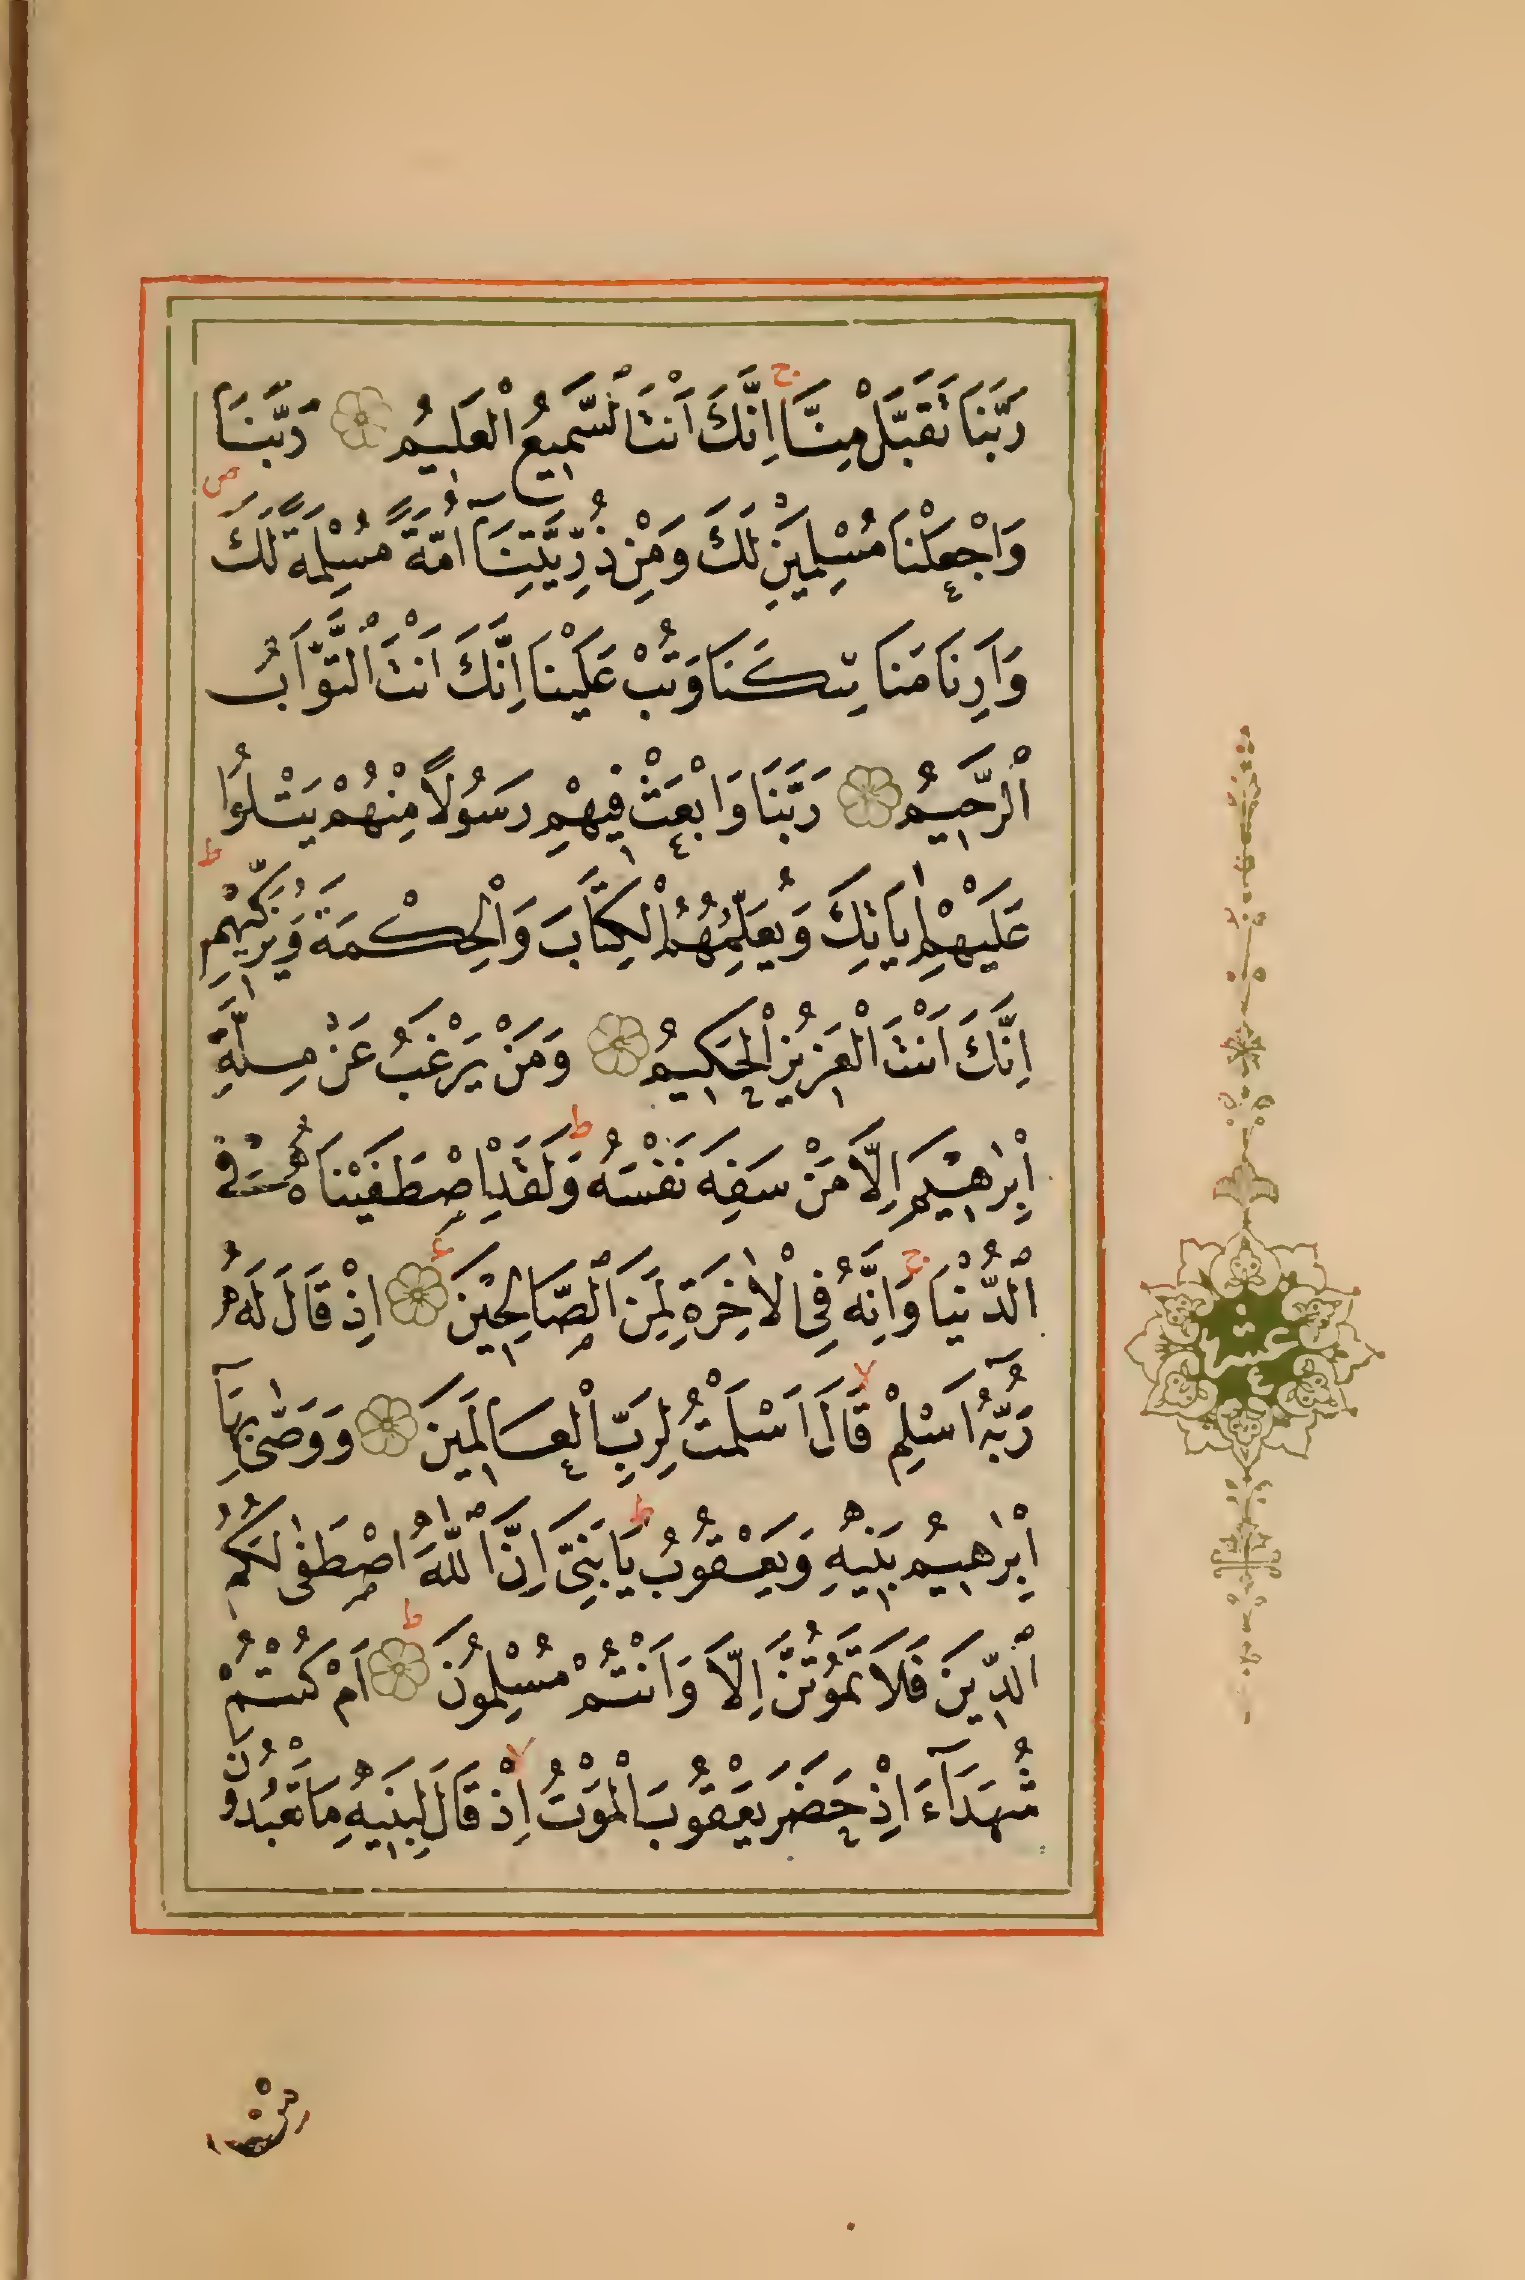 رَبَّنَا تَقَبَّلْ مِنَّا اِنَّكَ اَنْتَ السَّمِيعُ الْعَلِيمُ رَبَّنَا
وَاجْعَلْنَا مُسْلِمَيْنِ لَكَ وَمِنْ ذُرِّيَّتِنَآ اُمَّةً مُسْلِمَةً لَكَ
وَاَرِنَا مَنَاسِكَنَا وَتُبْ عَلَيْنَا اِنَّكَ اَنْتَ التَّوَّابُ
الرَّحِيمُ رَبَّنَا وَابْعَثْ فِيهِمْ رَسُولًا مِنْهُمْ يَتْلُوا
عَلَيْهِمْ اٰيَاتِكَ وَيُعَلِّمُهُمُ الْكِتَابَ وَالْحِكْمَةَ وَيُزَكِّيْهِمِ
اِنَّكَ اَنْتَ الْعَزِيزُ الْحَكِيمُ وَمَنْ يَرْغَبُ عَنْ مِلَّةِ
اِبْرٰهِيْمَ اِلَّا مَنْ سَفِهَ نَفْسَهُ وَلَقَدِ اصْطَفَيْنَاهُ فِي
الدُّنْيَا وَاِنَّهُ فِي الْاٰخِرَةِ لَمِنَ الصَّالِحِيْنَ اِذْ قَالَ لَهُ
رَبُّهُٓ اَسْلِمْ قَالَ اَسْلَمْتُ لِرَبِّ الْعَالَمِيْنَ وَوَصّٰى بِهَآ
اِبْرٰهِيمُ بَنِيْهِ وَيَعْقُوبُ يَا بَنِيَّ اِنَّ اللّٰهَ اصْطَفٰى لَكُمُ
الدِّينَ فَلَا تَمُوتُنَّ اِلَّا وَاَنْتُمْ مُسْلِمُونَ اَمْ كُنْتُمْ
شُهَدَآءَ اِذْ حَضَرَ يَعْقُوبَ الْمَوْتُ اِذْ قَالَ لِبَنِيْهِ مَا تَعْبُدُونَ